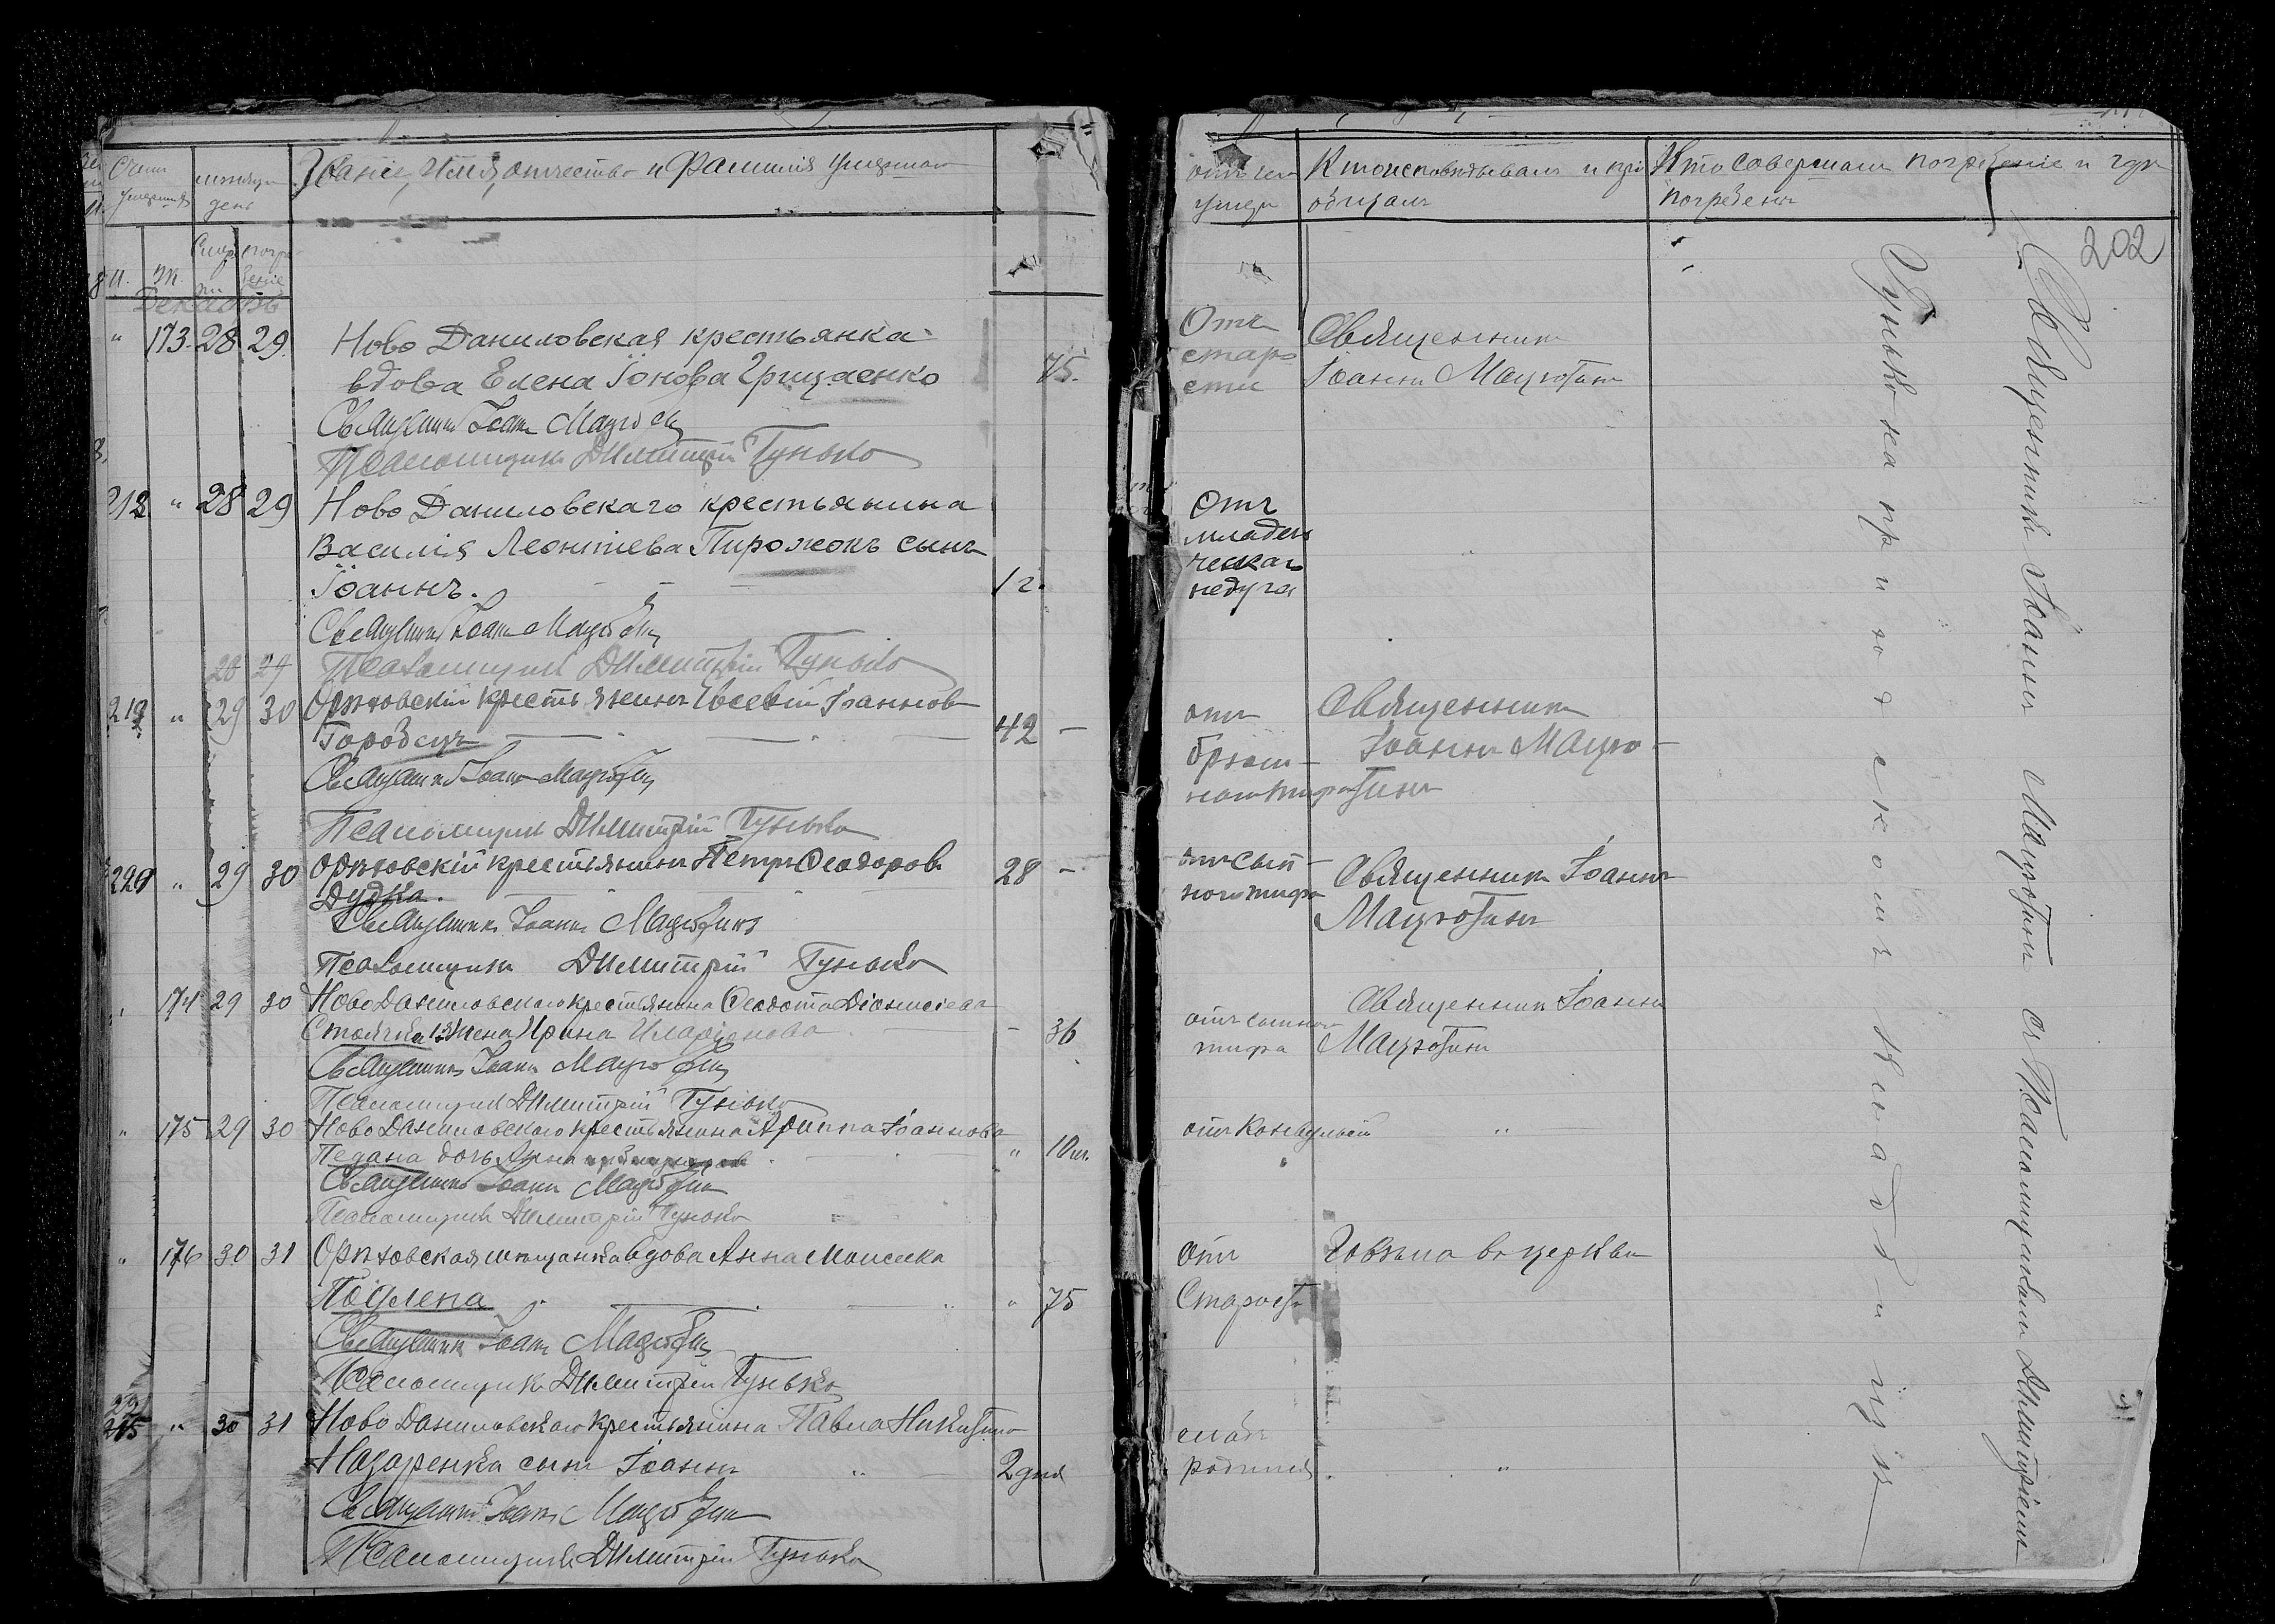 Счетъ умершихъ
мѣсяцъ день
Званіе, Имя, отчество и Фамилія умершаго
отъ чего умеръ
Кто исповѣдывалъ и пріобщалъ
Кто совершалъ погребеніе и гдѣ погребенъ
202
М. Ж.
Декабрь
" 173. 28 29. Ново Даниловская крестьянка
вдова Елена Іонова Грицаенко 75.
Отъ старости
Священникъ
Іоаннъ Мацютинъ
Священникъ Іоаннъ Мацютинъ
Псаломщикъ Димитрій Гунько
218. " 28 29 Ново Даниловскаго крестьянина
Василія Леонтіева Пирожокъ сынъ
Іоаннъ. 1 г.
Отъ
младен
ческаго
недуга
"
Священникъ Іоаннъ Мацютинъ
28 29 Псаломщикъ Димитрій Гунько
219 " 29 30 Орѣховскій крестьянинъ Евсевій Іоанновъ
Городецъ 42 -
отъ
брюш-
ноготифа
Священникъ
Іоаннъ Мацю-
тинъ
Священникъ Іоаннъ Мацютинъ
Псаломщикъ Димитрій Гунько
220 " 29 30 Орѣховскій крестьянинъ Петръ Ѳеодоровъ
Дудка. 28 -
отъ сып-
ноготифа
Священникъ Іоаннъ
Мацютинъ
Священникъ Іоаннъ Мацютинъ
Псаломщикъ Димитрій Гунько
" 174 29 30 Ново Даниловскаго крестьянина Ѳеодота Діонисіева
жена Ирина Иларіонова - 36
отъ сыпного
тифа
Священникъ Іоаннъ
Мацютинъ
Священникъ Іоаннъ Мацютинъ
Псаломщикъ Димитрій Гунько
" 175 29 30 Ново Даниловскаго крестьянина Іоаннова
дочь Анна " 10 м.
отъ конвульсій "
Священникъ Іоаннъ Мацютинъ
Псаломщикъ Димитрій Гунько
" 176 30 31 Орѣховская мѣщанка вдова Анна Моисеева
" 75
Отъ
Старости
Говѣла въ церкви
Священникъ Іоаннъ Мацютинъ
Псаломщикъ Димитрій Гунько
221
" 30 31 Ново Даниловскаго крестьянина Павла Никитина
Назаренка сынъ Іоаннъ " 2 дня
слабъ
родился. "
Священникъ Іоаннъ Мацютинъ
Псаломщикъ Димитрій Гунько
Священникъ Іоаннъ Мацютинъ съ Псаломщикомъ Димитріемъ
Гунько на приходскомъ кладбищѣ